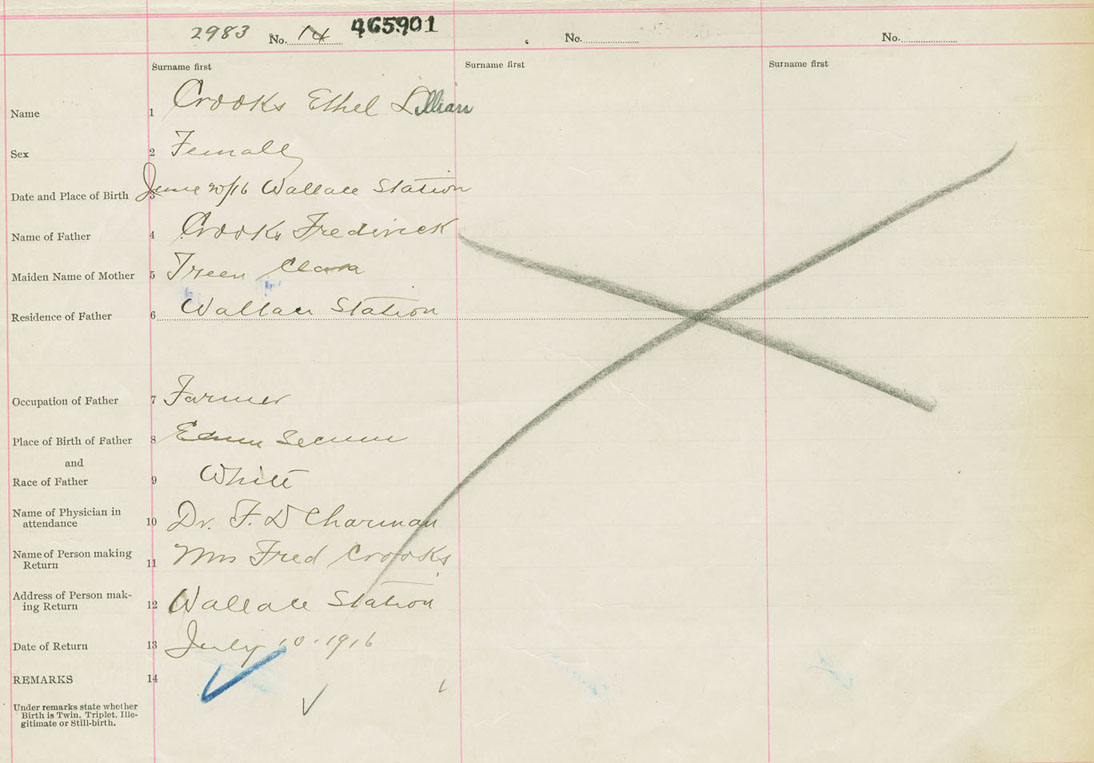 2983 No. 14 465901 No. No.
Surname first Surname first Surname first
Name 1 Crooks Ethel Lillian
Sex 2 Female
Date and Place of Birth 3 June 20/16 Wallace Station
Name of Father 4 Crooks Frederick
Maiden Name of Mother 5 Treen Clara
Residence of Father 6 Wallace Station
Occupation of Father 7 Farmer
Place of Birth of Father 8
and
Race of Father 9 White
Name of Physician in
attendance 10 Dr. F. D Charman
Name of Person making
Return 11 Mrs Fred Crooks
Address of Person mak-
ing Return 12 Wallace Station
Date of Return 13 July 10 - 1916
REMARKS 14
Under remarks state whether
Birth is Twin, Triplet, Ille-
gitimate or Still-birth.